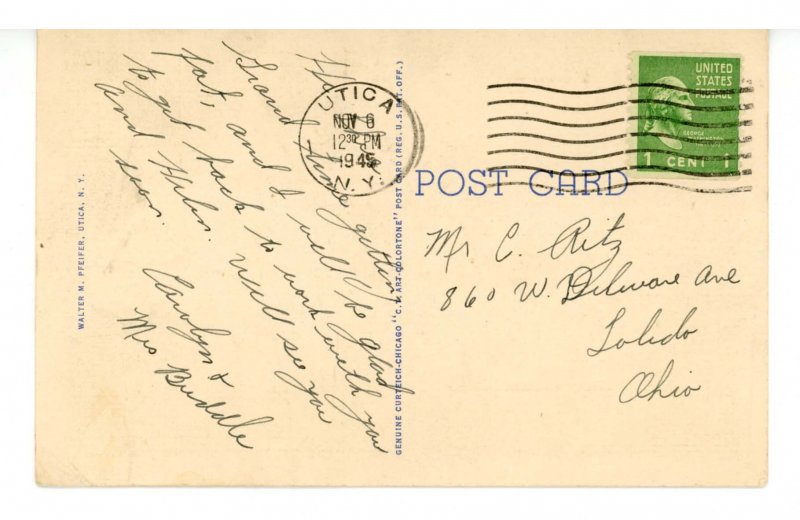 Having a
Grand time getting
fat, and I will be glad
to get back to work with you
and Helen. Will see you
soon.
Carolyn &
Mrs Buddle
WALTER M. PFEIFER, UTICA, N. Y.
GENUINE CURTEICH-CHICAGO "C.T. ART-COLORTONE" POST CARD (REG. U.S. PAT. OFF.)
UTICA
NOV 6
12 30 PM
1945
N.Y.
UNITED
STATES
POSTAGE
GEORGE
WASHINGTON
1 CENT 1
POST CARD
Mr C. Ritz
860 W. Delaware Ave
Toledo
Ohio